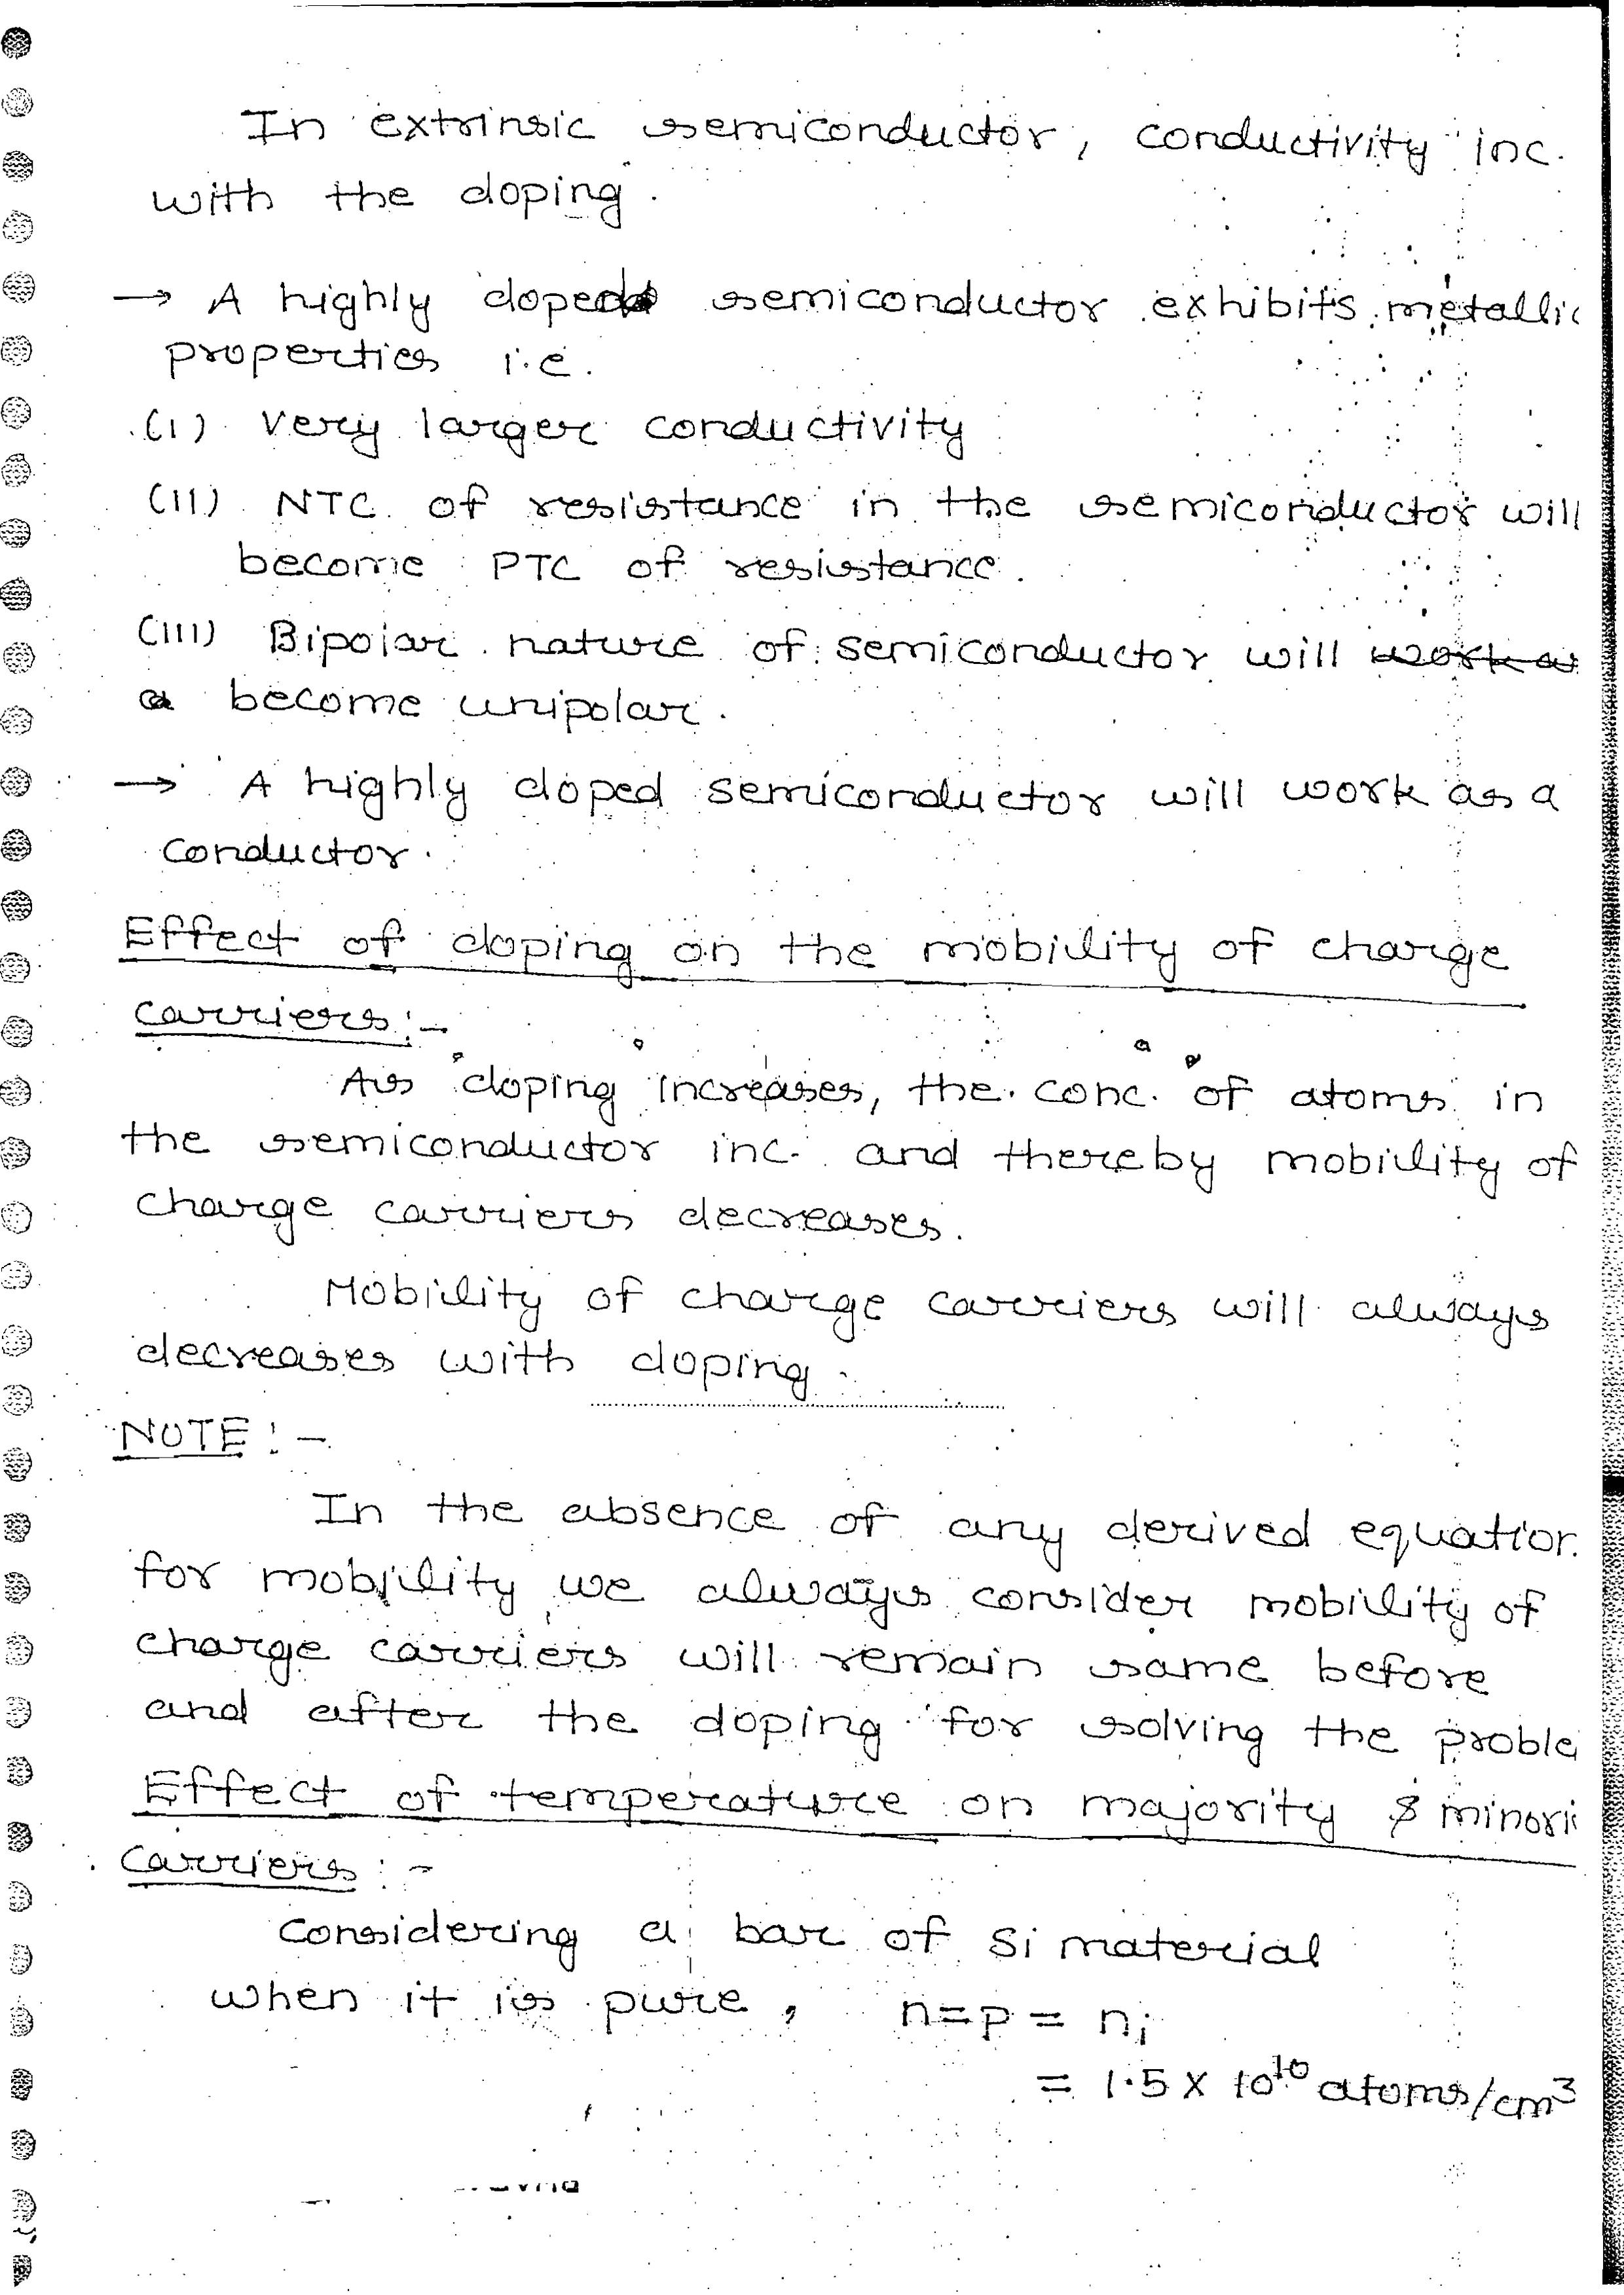 In extrinsic semiconductor, conductivity inc.
with the doping.
→ A highly doped semiconductor exhibits metallic
properties i.e.
(I) Very larger conductivity
(II) NTC of resistance in the semiconductor will
become PTC of resistance.
(III) Bipolar nature of semiconductor will work as
a become unipolar.
→ A highly doped semiconductor will work as a
conductor.
Effect of doping on the mobility of charge
carriers:-
As doping increases, the conc. of atoms in
the semiconductor inc. and thereby mobility of
charge carriers decreases.
Mobility of charge carriers will always
decreases with doping.
NOTE:-
In the absence of any derived equation
for mobility we always consider mobility of
charge carriers will remain same before
and after the doping for solving the proble
Effect of temperature on majority & minori
carriers:-
Considering a bar of Si material
when it is pure, n=p = ni
= 1.5 X 10¹⁰ atoms/cm³